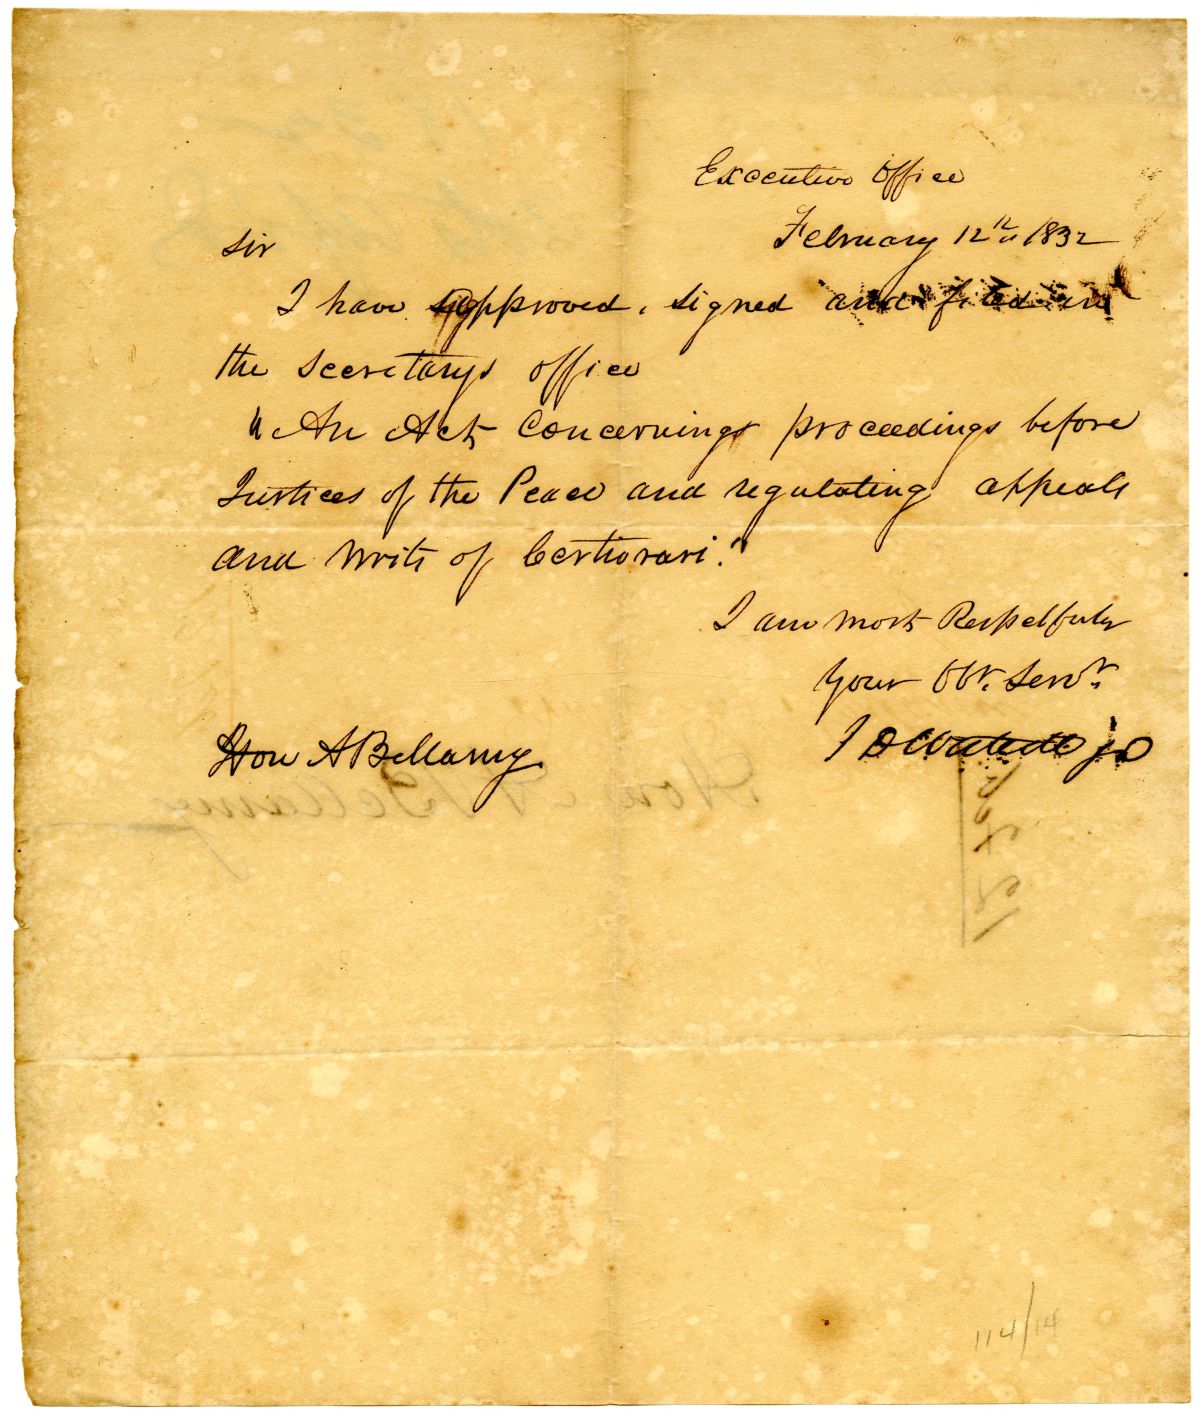 Executive Office
February 12th 1832
Sir
I have approved, signed and filed in
the Secretarys office
"An Act Concerning proceedings before
Justices of the Peace and regulating appeals
and writs of Certiorari."
I am most Respectfully
Your Obt. Servt.
J D Westcott jr
Hon A Bellamy
Hon A Bellamy
114/14